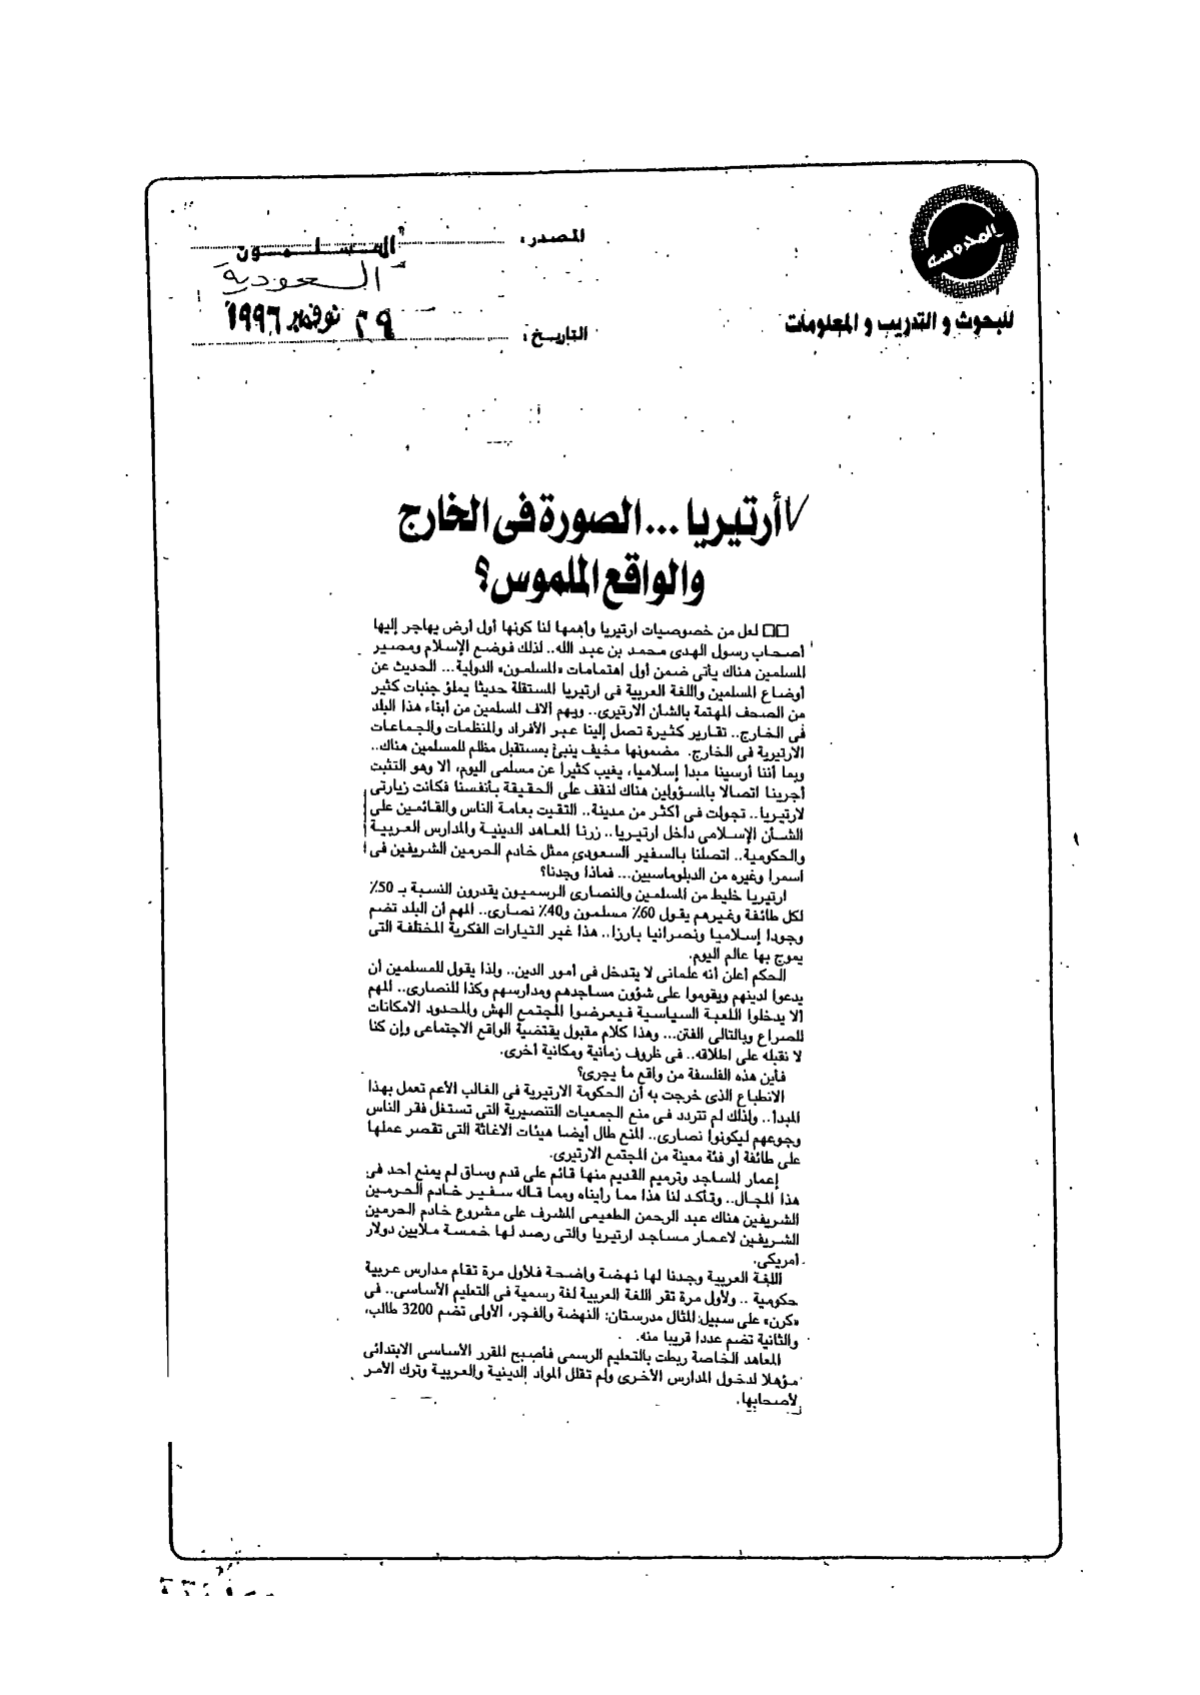 المحروسة
للبحوث و التدريب و المعلومات
المصدر:
المسلمون
السعودية
التاريخ:
٢٩ نوفمبر ١٩٩٦
أرتيريا ... الصورة فى الخارج
والواقع الملموس؟
لعل من خصوصيات ارتيريا وأهمها لنا كونها أول أرض يهاجر إليها
أصحاب رسول الهدى محمد بن عبد الله.. لذلك فوضع الإسلام ومصير
المسلمين هناك يأتى ضمن أول اهتمامات «المسلمون» الدولية... الحديث عن
أوضاع المسلمين واللغة العربية فى ارتيريا المستقلة حديثا يملؤ جنبات كثير
من الصحف المهتمة بالشأن الارتيرى.. ويهم آلاف المسلمين من أبناء هذا البلد
فى الخارج.. تقارير كثيرة تصل إلينا عبر الأفراد والمنظمات والجماعات
الارتيرية فى الخارج. مضمونها مخيف ينبئ بمستقبل مظلم للمسلمين هناك..
وبما أننا أرسينا مبدأ إسلاميا، يغيب كثيرا عن مسلمى اليوم، ألا وهو التثبت
أجرينا اتصالا بالمسؤولين هناك لنقف على الحقيقة بأنفسنا فكانت زيارتى
لارتيريا.. تجولت فى أكثر من مدينة.. التقيت بعامة الناس والقائمين على
الشأن الإسلامى داخل ارتيريا.. زرنا المعاهد الدينية والمدارس العربية
والحكومية.. اتصلنا بالسفير السعودى ممثل خادم الحرمين الشريفين فى
اسمرا وغيره من الدبلوماسيين... فماذا وجدنا؟
ارتيريا خليط من المسلمين والنصارى الرسميون يقدرون النسبة بـ 50٪
لكل طائفة وغيرهم يقول 60٪ مسلمون و40٪ نصارى.. المهم أن البلد تضم
وجودا إسلاميا ونصرانيا بارزا.. هذا غير التيارات الفكرية المختلفة التى
يموج بها عالم اليوم.
الحكم أعلن أنه علمانى لا يتدخل فى أمور الدين.. ولذا يقول للمسلمين أن
يدعوا لدينهم ويقوموا على شؤون مساجدهم ومدارسهم وكذا للنصارى.. المهم
ألا يدخلوا اللعبة السياسية فيعرضوا المجتمع الهش والمحدود الامكانات
للصراع وبالتالى الفتن... وهذا كلام مقبول يقتضية الواقع الاجتماعى وإن كنا
لا نقبله على اطلاقه.. فى ظروف زمانية ومكانية أخرى.
فأين هذه الفلسفة من واقع ما يجرى؟
الانطباع الذى خرجت به أن الحكومة الارتيرية فى الغالب الأعم تعمل بهذا
المبدأ.. ولذلك لم تتردد فى منع الجمعيات التنصيرية التى تستغل فقر الناس
وجوعهم ليكونوا نصارى.. المنع طال أيضا هيئات الاغاثة التى تقصر عملها
على طائفة أو فئة معينة من المجتمع الارتيرى.
إعمار المساجد وترميم القديم منها قائم على قدم وساق لم يمنع أحد فى
هذا المجال.. وتأكد لنا هذا مما رأيناه ومما قاله سفير خادم الحرمين
الشريفين هناك عبد الرحمن الطعيمى المشرف على مشروع خادم الحرمين
الشريفين لاعمار مساجد ارتيريا والتى رصد لها خمسة ملايين دولار
أمريكى.
اللغة العربية وجدنا لها نهضة واضحة فلأول مرة تقام مدارس عربية
حكومية .. ولأول مرة تقر اللغة العربية لغة رسمية فى التعليم الأساسى.. فى
«كرن» على سبيل المثال مدرستان: النهضة والفجر، الأولى تضم 3200 طالب،
والثانية تضم عددا قريبا منه.
المعاهد الخاصة ربطت بالتعليم الرسمى فأصبح المقرر الأساسى الابتدائى
مؤهلا لدخول المدارس الأخرى ولم تقلل المواد الدينية والعربية وترك الأمر
لأصحابها.